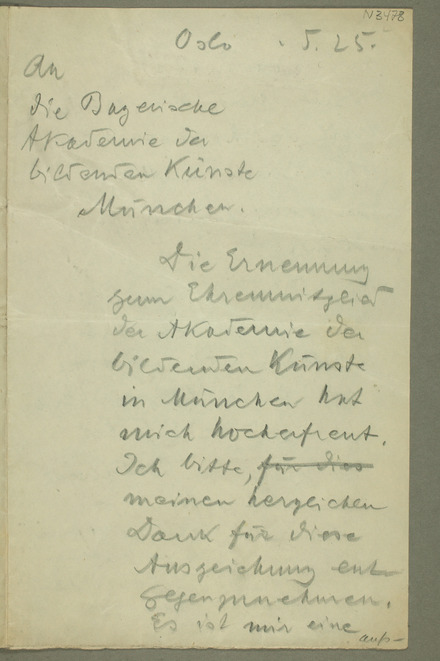 N 3478
Oslo . 5. 25.
An
die Bayerische
Akademie der
bildenden Künste
München.
Die Ernennung
zum Ehrenmitglied
der Akademie der
bildenden Künste
in München hat
mich hocherfreut.
Ich bitte, für dies
meinen herzlichen
Dank für diese
Auszeichnung ent-
gegenzunehmen.
Es ist mir eine